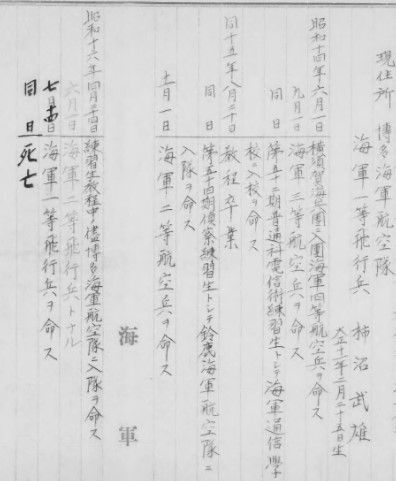 現住所 博多海軍航空隊
海軍一等飛行兵 柿沼武雄
大正十一年二月二十五日生
昭和十四年六月一日 横須賀海兵團ニ入團海軍四等航空兵ヲ命ス
九月一日 海軍三等航空兵ヲ命ス
同日 第五十二期普通科電信術練習生トシテ海軍通信學
校ニ入校ヲ命ス
同十五年八月二十日 教程卒業
同日 第五十四期偵察練習生トシテ鈴鹿海軍航空隊ニ
入隊ヲ命ス
十一月一日 海軍二等航空兵ヲ命ス
海軍
昭和十六年四月 練習生教程中儘博多海軍航空隊ニ入隊ヲ命ス
六月一日 海軍二等飛行兵トナル
七月 海軍一等飛行兵ヲ命ス
同日 死亡